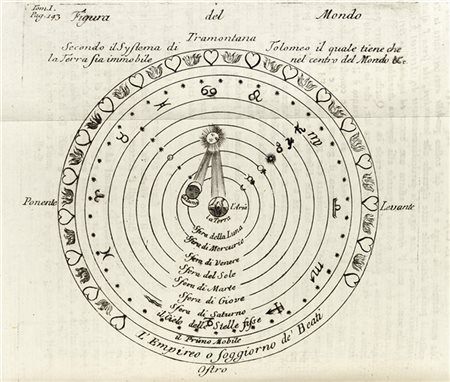 Tom. I.
Pag. 143
Figura del Mondo
Tramontana
Secondo il Systema di Tolomeo il quale tiene che
la Terra sia immobile nel centro del Mondo &c.
Ponente
Levante
L'Aria
la Terra
Sfera della Luna
Sfera di Mercurio
Sfera di Venere
Sfera del Sole
Sfera di Marte
Sfera di Giove
Sfera di Saturno
il Cielo delle Stelle fisse
il Primo Mobile
L'Empireo o soggiorno de' Beati
Ostro